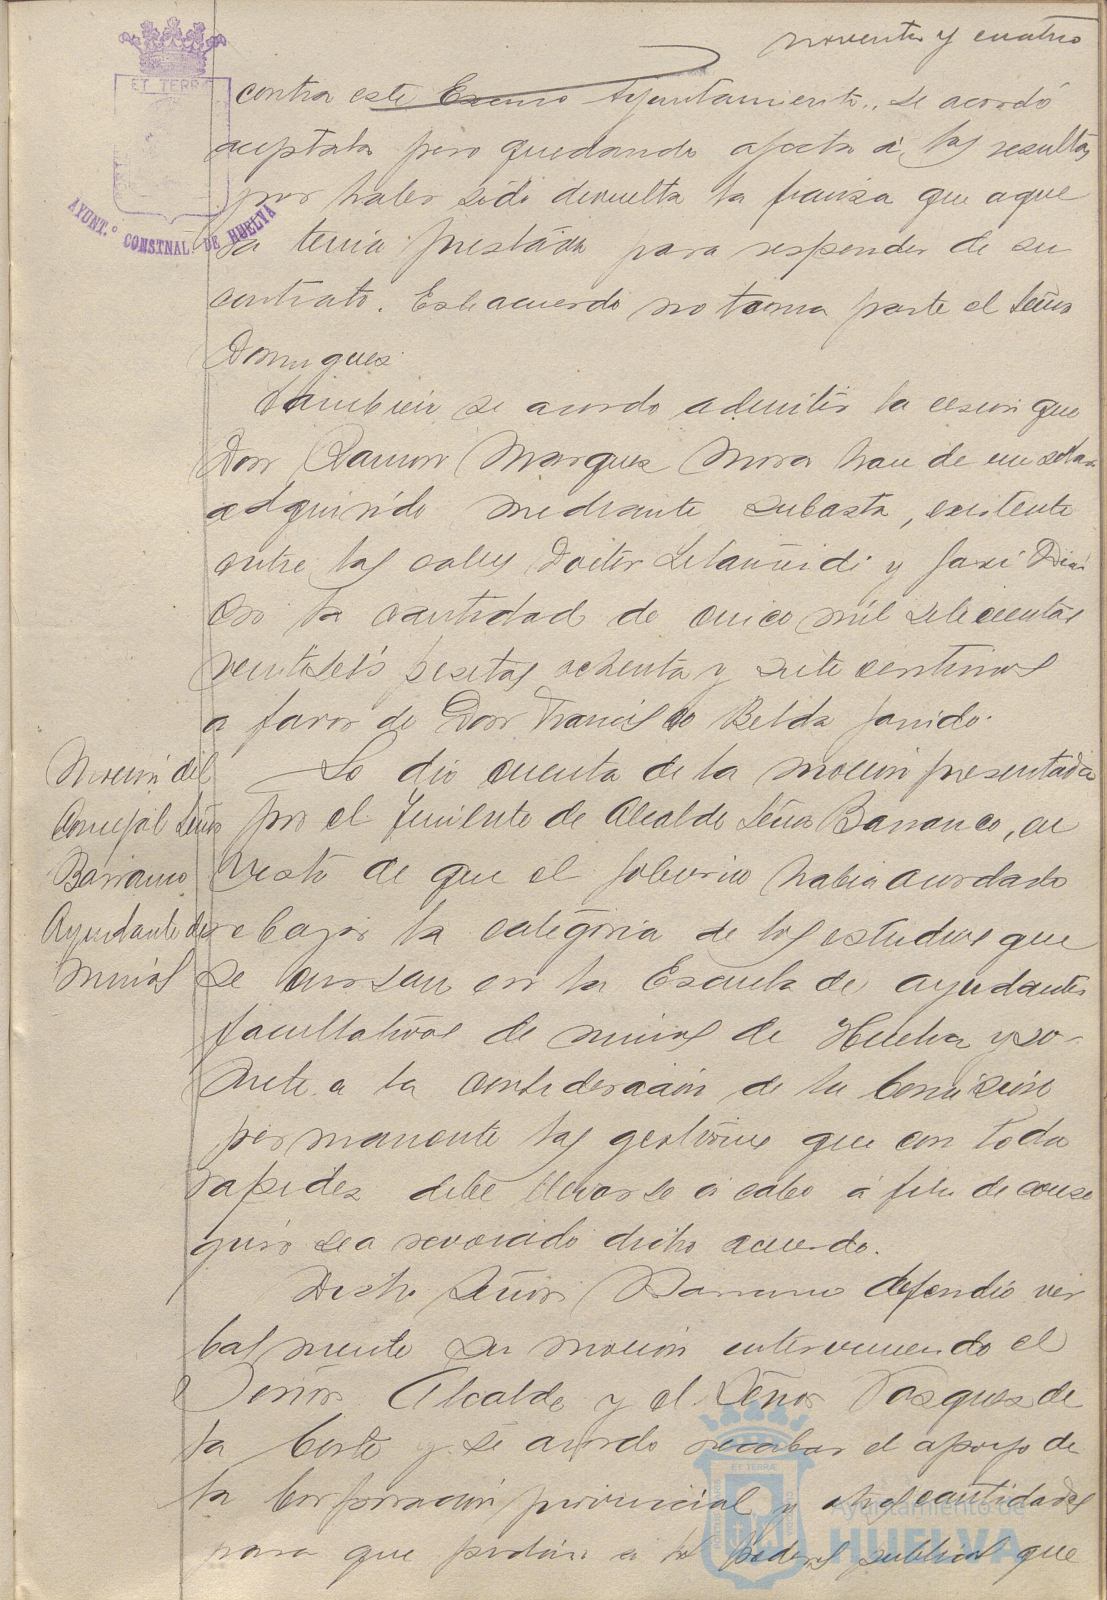 noventa y cuatro
ET TERRÆ
AYUNT.º CONSTNAL. DE HUELVA
contra este Excmo Ayuntamiento, se acordó
aceptada pero quedando afecta á las resultas
por haber sido devuelta la fianza que aque
lla tenia prestada para responder de su
contrato. Este acuerdo no toma parte el Señor
Dominguez.
Tambien se acordo admitir la cesion que
Don Ramon Marquez Mora hace de un solar
adquirido mediante subasta, existente
entre las calles Doctor Letamendi y José Diaz
en la cantidad de cinco mil setecientas
veintiseis pesetas ochenta y siete centimos
a favor de Don Francisco Belda Garrido.
Mocion del
Concejal Señor
Barranco
Ayudante de
minas
Se dio cuenta de la mocion presentada
por el Teniente de Alcalde Señor Barranco, en
vista de que el Gobierno habia acordado
rebajar la categoria de los estudios que
se cursan en la Escuela de ayudantes
facultativos de minas de Huelva y so-
mete a la consideración de la Comisión
permanente las gestiones que con toda
rapidez debe llevarse á cabo á fin de conse
guir sea revocado dicho acuerdo.
Dicho Señor Barranco defendió ver
balmente su moción interviniendo el
Señor Alcalde y el Señor Vazquez de
la Corte y se acordo recabar el apoyo de
la Corporación provincial y otras entidades
para que pidan a los poderes publicos que
ET TERRÆ
Ayuntamiento de
HUELVA